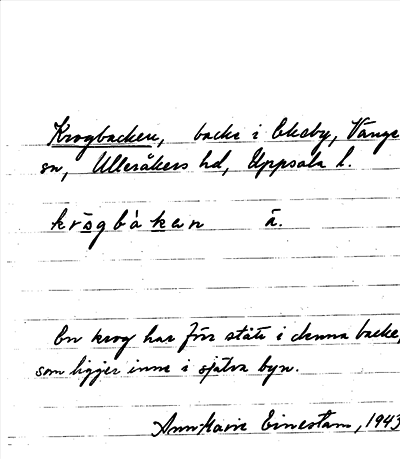 Krogbacken, backe i Ekeby, Vänge
sn, Ulleråkers hd, Uppsala l.
krōgbàkan ā.
En krog har förr stått i denna backe,
som ligger inne i själva byn.
AnnMarie Einestam, 1943